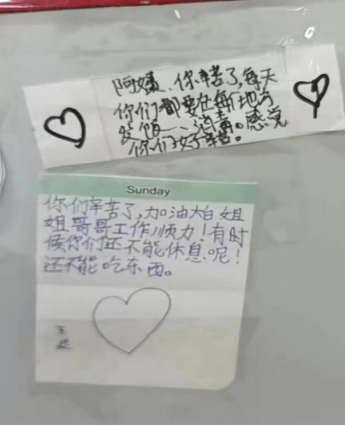 阿姨、你辛苦了,每天
你们都要在每个地方
消毒。感觉
你们好辛苦。
Sunday
你们辛苦了,加油大白姐
姐哥哥工作顺力!有时
候你们还不能休息呢!
还不能吃东西。